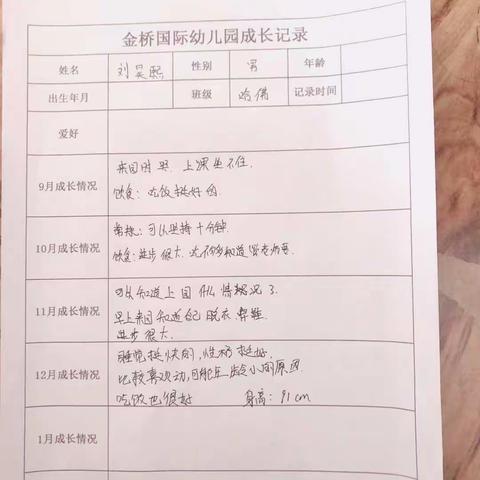 金桥国际幼儿园成长记录
姓名 刘昊熙 性别 男 年龄
出生年月 班级 哈佛 记录时间
爱好
9月成长情况 来园时哭. 上课坐不住.
饮食: 吃饭挺好的.
10月成长情况 可以坚持十分钟.
饮食: 进步很大.
11月成长情况 可以知道上园什么情况了.
早上来园知道自己脱衣 换鞋.
进步很大.
12月成长情况 睡觉挺快的, 性格挺好.
比较喜欢动, 可能是龄小的原因.
吃饭也很好 身高: 91cm
1月成长情况